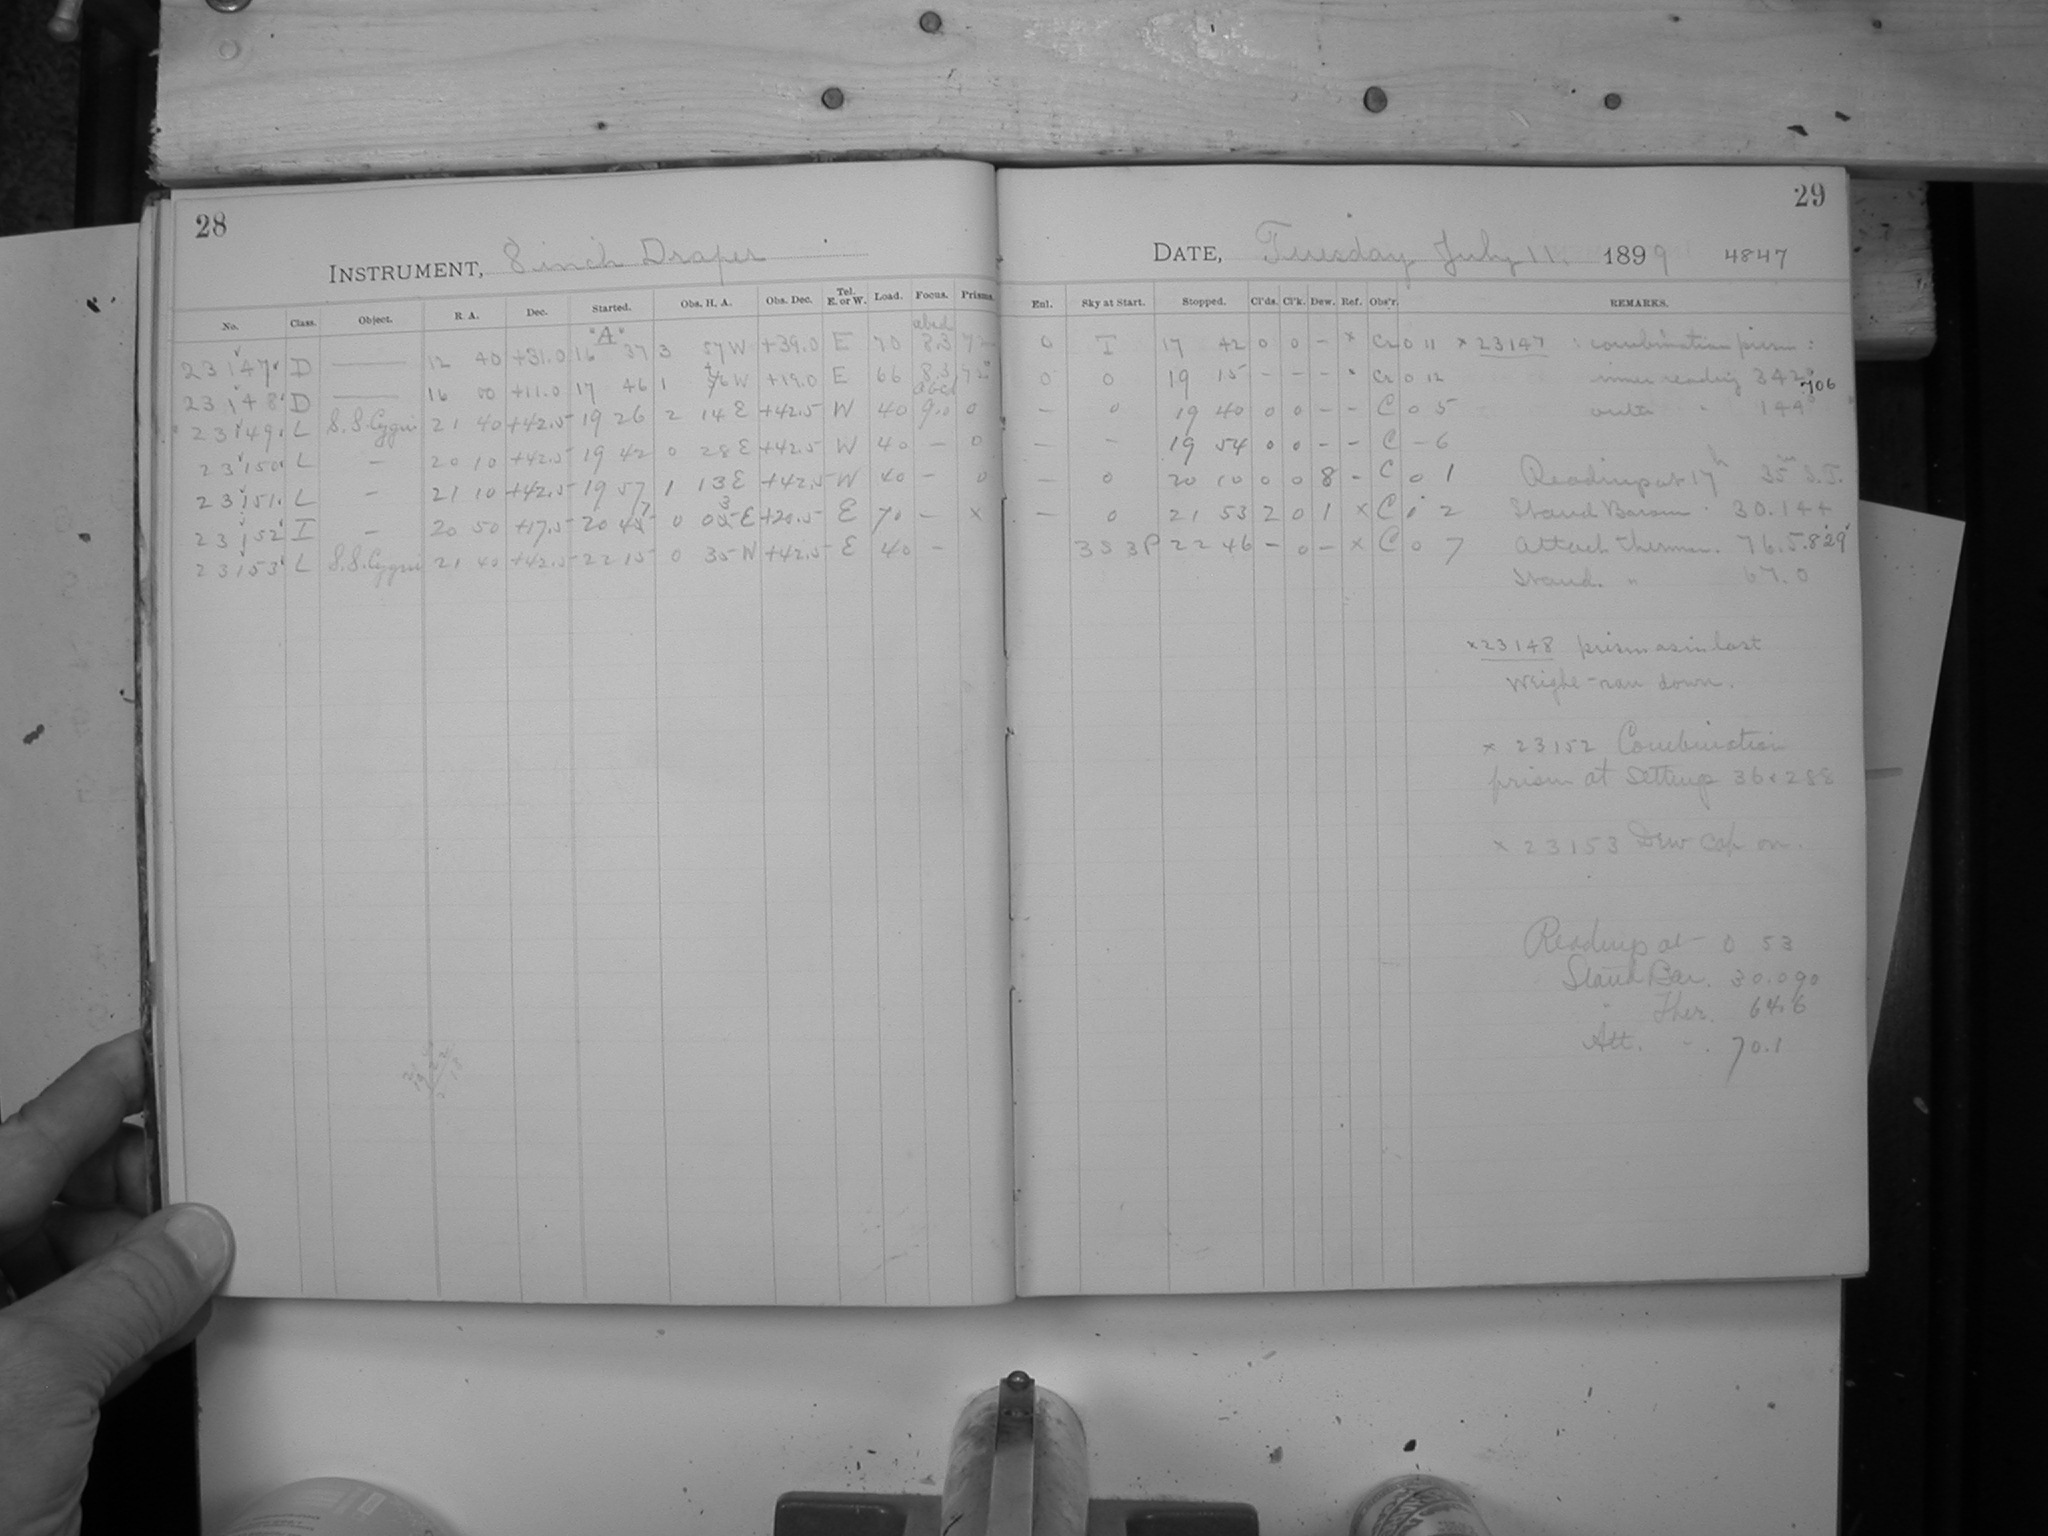 28
INSTRUMENT, 8 inch Draper
No. Class. Object. R. A. Dec. Started. Obs. H. A. Obs. Dec. Tel. E. or W. Load. Focus. Prisms.
"A" abcd
23147 D — 12 40 +31.0 16 37 3 57 W +39.0 E 70 8.3 72
23148 D — 16 00 +11.0 17 46 1 46 W +19.0 E 66 8.3 72
23149 L S.S. Cygni 21 40 +42.5 19 26 2 14 E +42.5 W 40 9.0 0
23150 L — 20 10 +42.5 19 42 0 28 E +42.5 W 40 — 0
23151 L — 21 10 +42.5 19 57 1 13 E +42.5 W 40 — 0
23152 I — 20 50 +17.5 20 47 0 03 E +20.5 E 70 — x
23153 L S.S. Cygni 21 40 +42.5 22 15 0 35 W +42.5 E 40 —
29
DATE, Tuesday July 11. 1899 4847
Enl. Sky at Start. Stopped. Cl'ds. Cl'k. Dew. Ref. Obs'r. REMARKS.
0 I 17 42 0 0 – x Cr 0 11 x 23147 : combination prism :
0 0 19 15 – – – Cr 0 12 inner reading 342° 706
— 0 19 40 0 0 – – C 0 5 outer " 144°
— – 19 54 0 0 – – C – 6
— 0 20 10 0 0 8 – C 0 1 Readings at 17h 35m S.T.
— 0 21 53 2 0 1 x C 2 Stand Barom. 30.144
3S 3P 22 46 – 0 – x C 0 7 Attach. thermom. 76.5 .829
Stand. " 67.0
x 23148 prism as in last
Weight ran down.
x 23152 Combination
prism at settings 36 & 288
x 23153 Dew cap on.
Readings at – 0 53
Stand Bar. 30.090
" Ther. 64.6
Att. – . 70.1